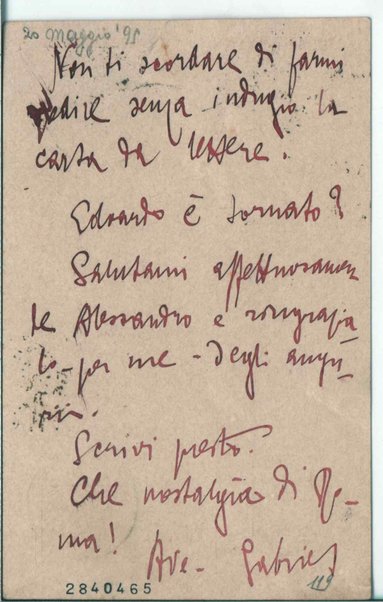 20 Maggio '95
Non ti scordare di farmi
spedire senza indugio la
carta da lettere.
Edoardo è tornato?
Salutami affettuosamen
te Alessandro e ringrazia
lo per me - degli augu-
rii.
Scrivi presto.
Che nostalgia di Ro-
ma!
Ave - Gabriel
119
2840465